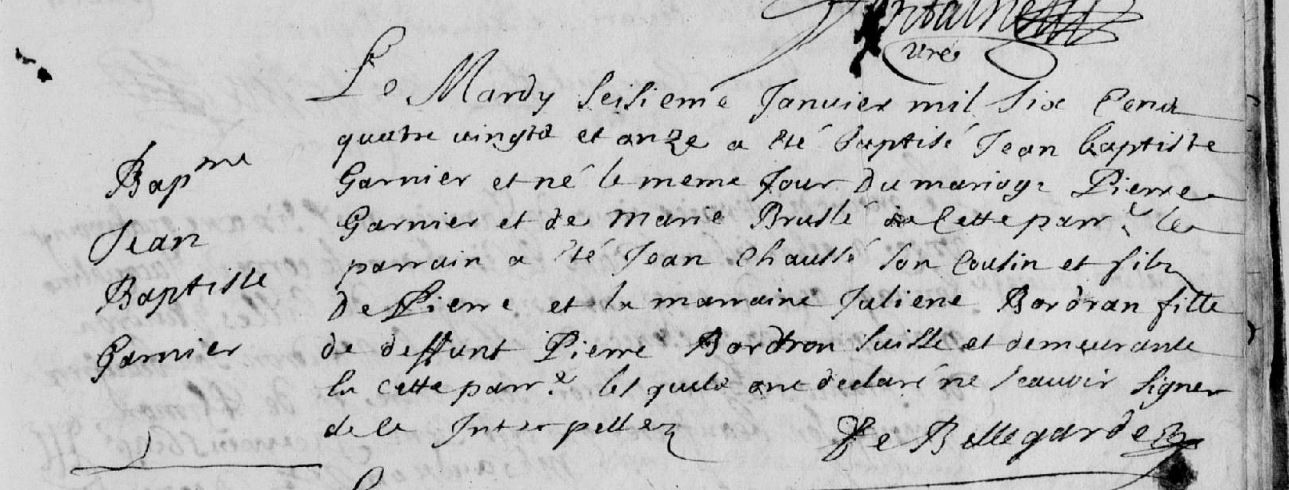 Curé
Le Mardy seisieme Janvier mil six cens
quatre vingts et onze a été baptisé Jean baptiste
Garnier et né le meme jour du mariage Pierre
Garnier et de Marie Bruslé de Cette parr.e le
parrain a été Jean Chaussé son Cousin et fils
De Pierre et la marraine Juliene Bordran fille
de deffunt Pierre Bordron et demeurante
cette parr.e lesquels ont declaré ne scavoir signer
de ce Interpellez
De Bellegarde
Bap.me
Jean
Baptiste
Garnier